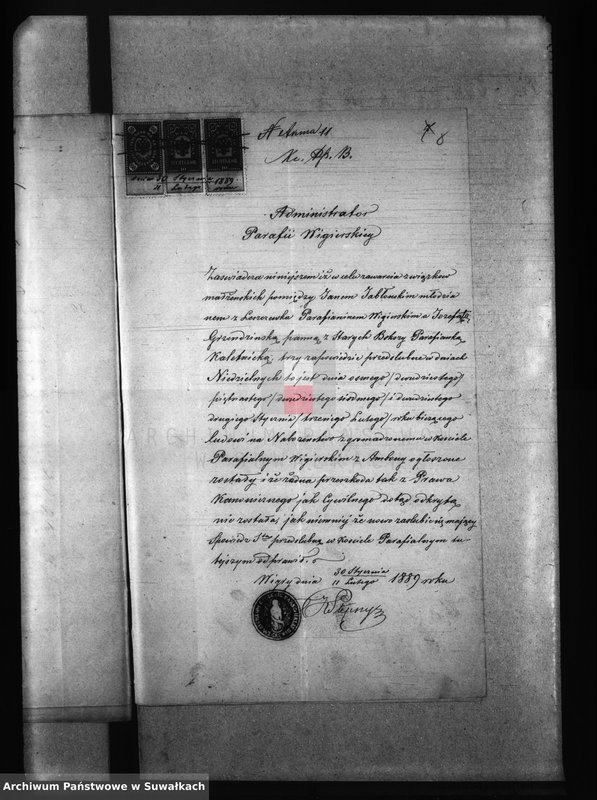 N Anna 11
8
Administrator
Parafii Wigierskiey
dnia 30 Stycznia 1889
11 Lutego roku
Zaświadcza niniejszem iż w celu zawarcia związkow
małżeńskich pomiędzy Janem Jabłońskim młodzia
nem z Leszczewka Parafianinem Wigierskim a Jozefatą
Grzendzinską panną z Starych Boksz Parafianką
Kaletnicką, trzy zapowiedzie przedslubne w dniach
Niedzielnych to jest dnia osmego /dwudziestego/
piętnastego /dwudziestego siodmego/ i dwudziestego
drugiego Stycznia /trzeciego Lutego/ roku bieżącego
ludowi na Nabożeństwo zgromadzonemu w Kosciele
Parafialnym Wigierskim z Ambony ogłoszone
zostały i że żadna przeszkoda tak z Prawa
Kanonicznego jak Cywilnego dotąd odkrytą
nie została, jak niemniej że nowo zaslubić się mający
Spowiedz S-tą przedslubną w Kosciele Parafialnym tu
tejszym odprawił.
Wigry dnia 30 Stycznia / 11 Lutego 1889 roku
Archiwum Państwowe w Suwałkach